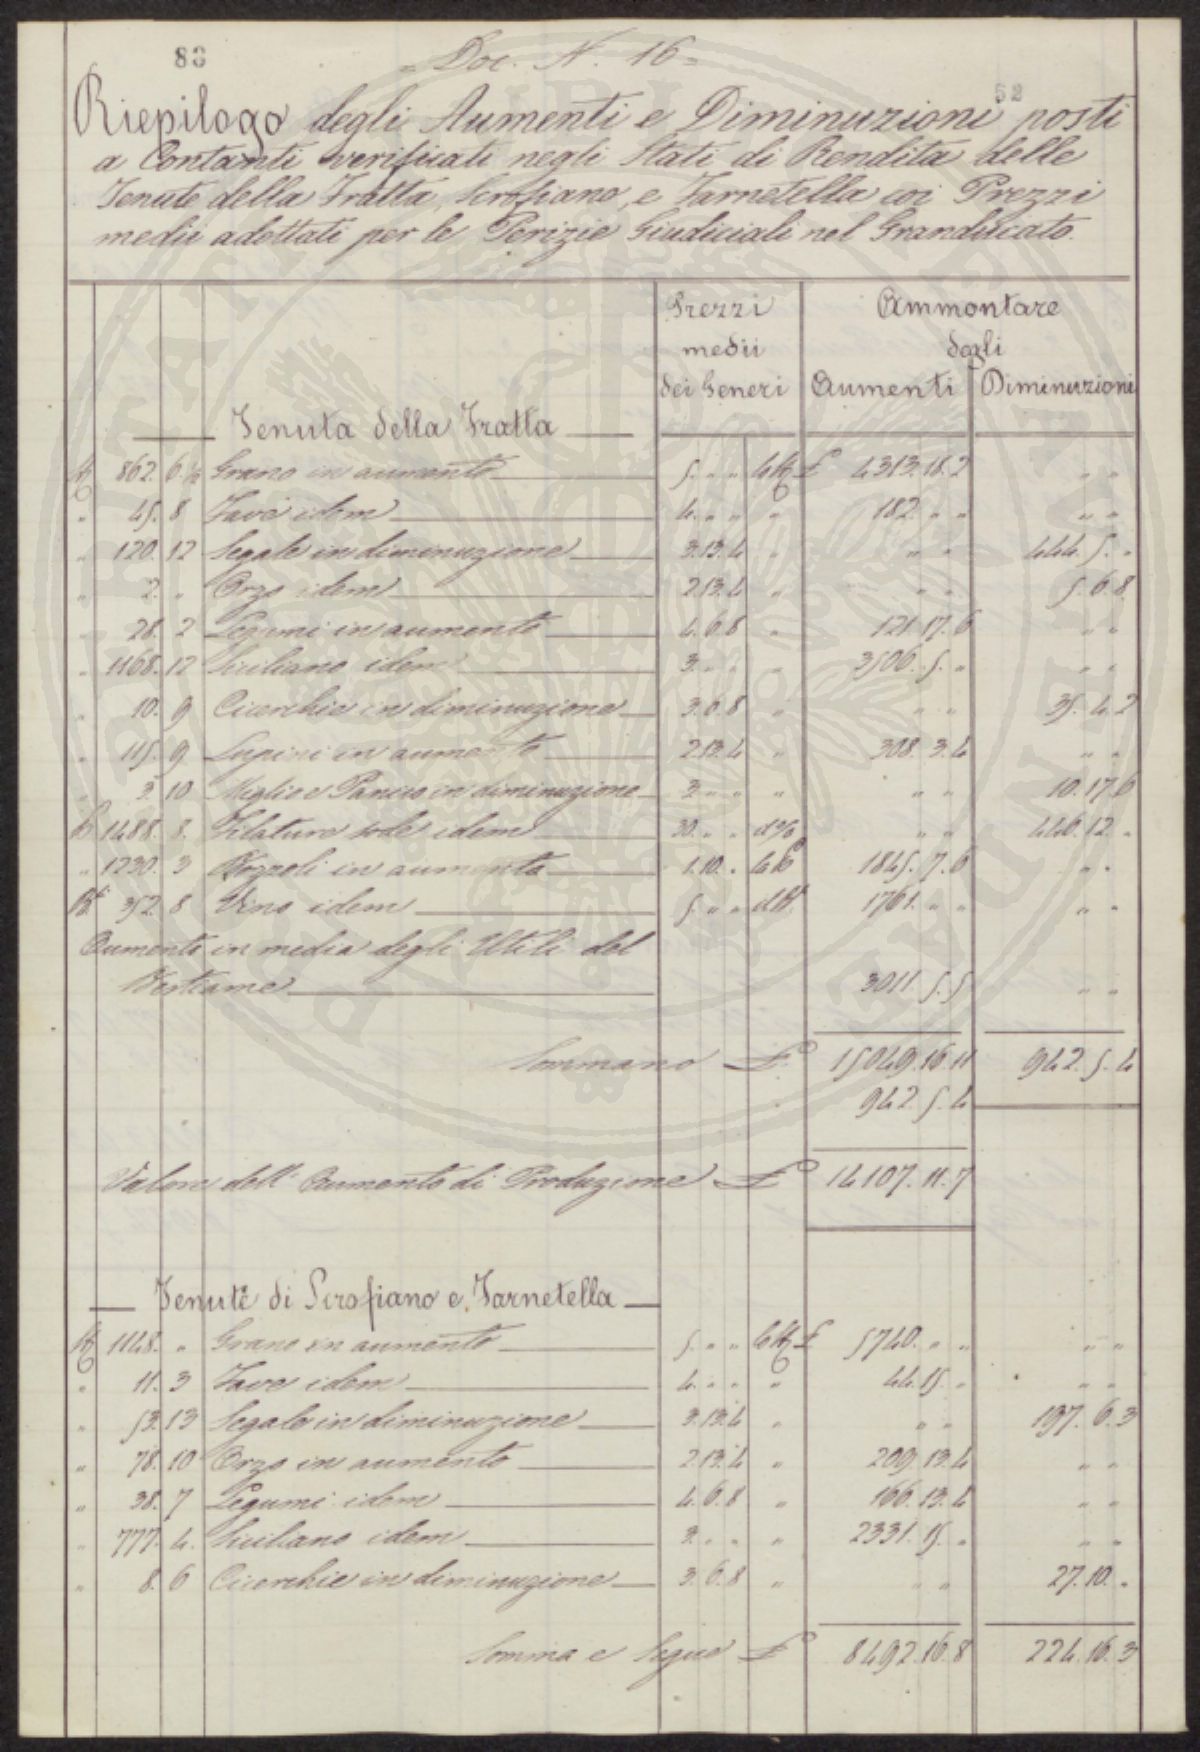 83
= Doc. N. 16 =
52
Riepilogo degli Aumenti e Diminuzioni posti
a Contanti verificati negli Stati di Rendita delle
Tenute della Fratta, Scrofiano, e Farnetella coi Prezzi
medii adottati per le Perizie Giudiciali nel Granducato.
Prezzi medii dei Generi Ammontare degli Aumenti Diminuzioni
Tenuta della Fratta
862. 6 ½ Grano in aumento 5. " " £ 4313. 18. 2 " "
" 45. 8 Fave idem 4. " " " 182. " " " "
" 120. 12 Segale in diminuzione 3. 13. 4 " " " 444. 5. "
" 2. " Orzo idem 2. 13. 4 " " " 5. 6. 8
" 28. 2 Legumi in aumento 4. 6. 8 " 121. 17. 6 " "
" 1168. 12 Siciliano idem 3. " " " 3506. 5. " " "
" 10. 9 Cicerchie in diminuzione 3. 6. 8 " " " 35. 4. 2
" 115. 9 Lupini in aumento 2. 13. 4 " 308. 3. 4 " "
" 3. 10 Miglio e Panico in diminuzione 3 " " " " " 10. 17. 6
1488. 8. Filature sode idem 30. " " " " 446. 12. "
" 1230. 3 Bozzoli in aumento 1. 10. " 1845. 7. 6 " "
352. 8 Vino idem 5. " " 1761. " " " "
Aumento in media degli Utili del
Bestiame 3011. 5. 5 " "
Sommano £ 15049. 16. 11 942. 5. 4
942. 5. 4
Valore dell' Aumento di Produzione £ 14107. 11. 7
Tenute di Scrofiano e Farnetella
1148. " Grano in aumento 5. " " £ 5740. " " " "
" 11. 3 Fave idem 4. " " " 44. 15. " " "
" 53. 13 Segale in diminuzione 3. 13. 4 " " " 197. 6. 3
" 78. 10 Orzo in aumento 2. 13. 4 " 209. 13. 4 " "
" 38. 7 Legumi idem 4. 6. 8 " 166. 13. 4 " "
" 777. 4. Siciliano idem 3. " " " 2331. 15. " " "
" 8. 6 Cicerchie in diminuzione 3. 6. 8 " " " 27. 10. "
Somma e Segue £ 8492. 16. 8 224. 16. 3